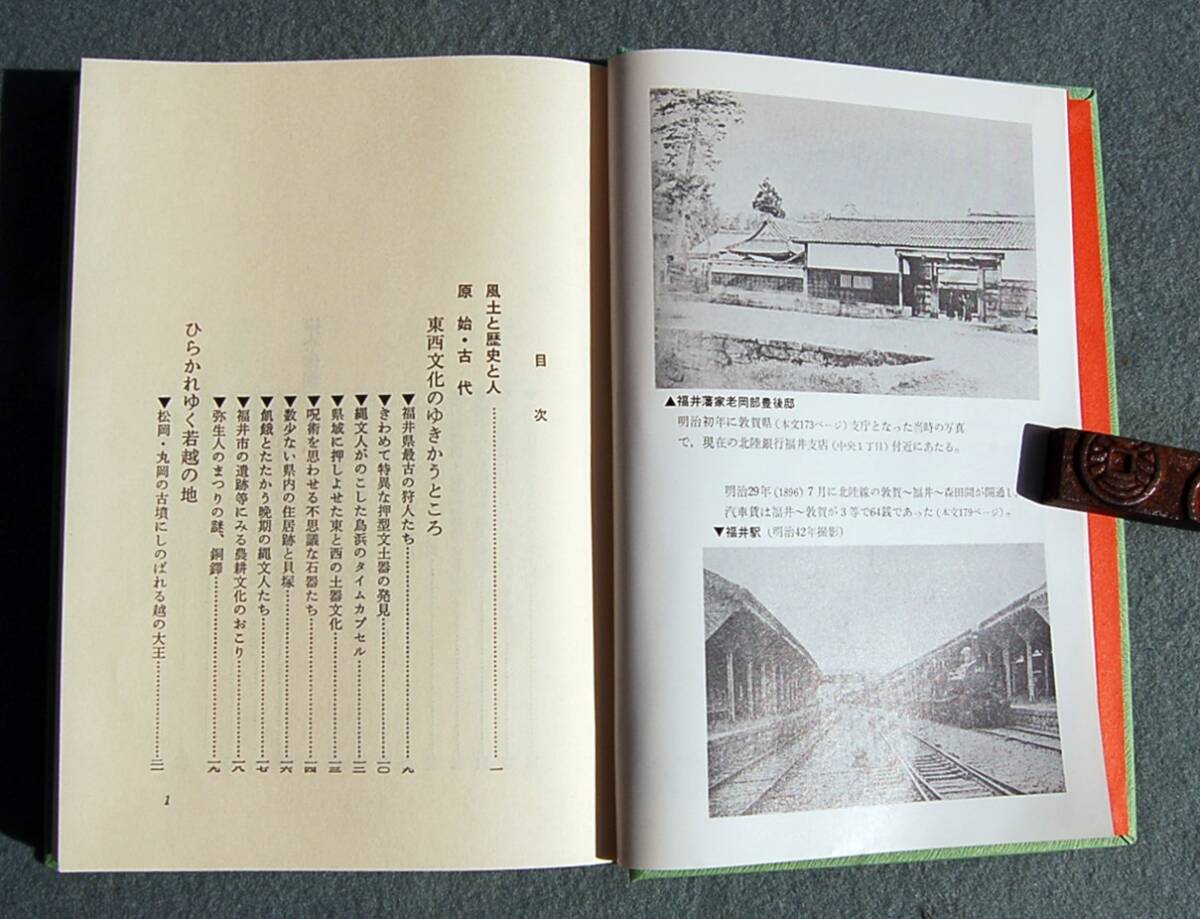 ▲福井藩家老岡部豊後邸
明治初年に敦賀県(本文173ページ)支庁となった当時の写真
で、現在の北陸銀行福井支店(中央1丁目)付近にあたる。
明治29年(1896)7月に北陸線の敦賀〜福井〜森田間が開通し、
汽車賃は福井〜敦賀が3等で64銭であった(本文179ページ)。
▼福井駅(明治42年撮影)
目次
風土と歴史と人……一
原始・古代
東西文化のゆきかうところ
▼福井県最古の狩人たち……九
▼きわめて特異な押型文土器の発見……一〇
▼縄文人がのこした鳥浜のタイムカプセル……一二
▼県域に押しよせた東と西の土器文化……一三
▼呪術を思わせる不思議な石器たち……一四
▼数少ない県内の住居跡と貝塚……一六
▼飢餓とたたかう晩期の縄文人たち……一七
▼福井市の遺跡等にみる農耕文化のおこり……一八
▼弥生人のまつりの謎、銅鐸……一九
ひらかれゆく若越の地
▼松岡・丸岡の古墳にしのばれる越の大王……二一
1